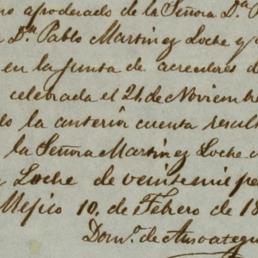 no apoderado de la Señora Dª P
n Dⁿ Pablo Martinez Loche y
en la Junta de acreedores d
celebrada el 24 de Noviembre
do la anterior cuenta result
la Señora Martinez Loche
Loche de veintemil pe
Mejico 10, de Febrero de 18
Domº de Ansoategui